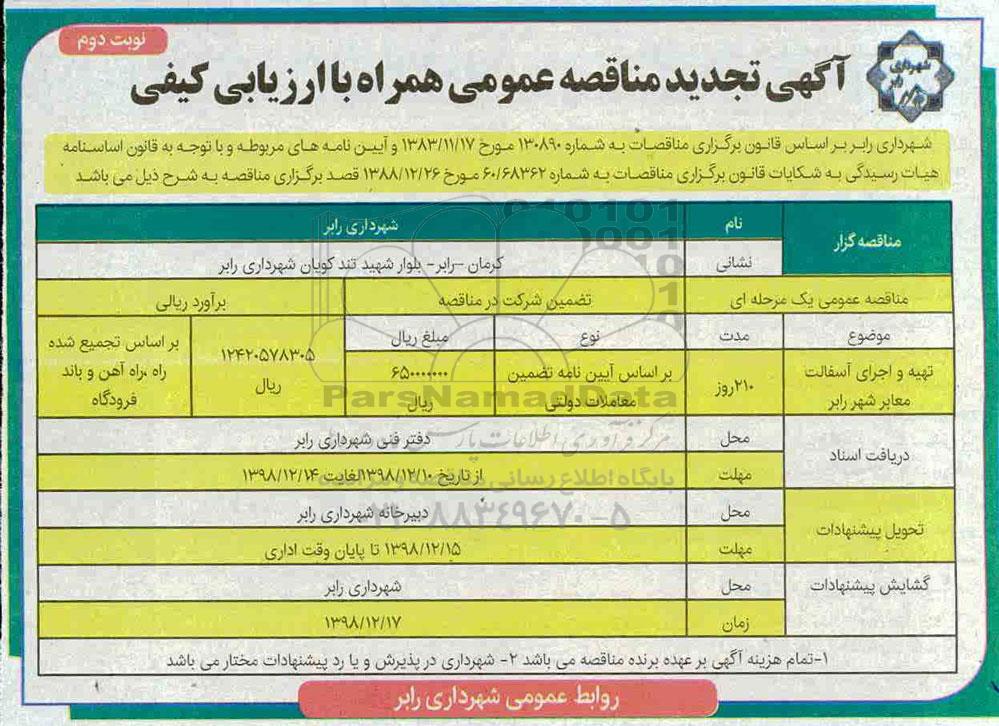 نوبت دوم
شهرداری رابر
آگهی تجدید مناقصه عمومی همراه با ارزیابی کیفی
شهرداری رابر بر اساس قانون برگزاری مناقصات به شماره ۱۳۰۸۹۰ مورخ ۱۳۸۳/۱۱/۱۷ و آیین نامه های مربوطه و با توجه به قانون اساسنامه
هیات رسیدگی به شکایات قانون برگزاری مناقصات به شماره ۶۰/۶۸۳۶۲ مورخ ۱۳۸۸/۱۲/۲۶ قصد برگزاری مناقصه به شرح ذیل می باشد
مناقصه گزار نام شهرداری رابر
نشانی کرمان –رابر- بلوار شهید تند گویان شهرداری رابر
مناقصه عمومی یک مرحله ای تضمین شرکت در مناقصه برآورد ریالی
موضوع مدت نوع مبلغ ریال
تهیه و اجرای آسفالت معابر شهر رابر ۲۱۰روز بر اساس آیین نامه تضمین معاملات دولتی ۶۵۰۰۰۰۰۰۰ ریال ۱۲۴۲۰۵۷۸۳۰۵ ریال بر اساس تجمیع شده راه ،راه آهن و باند فرودگاه
دریافت اسناد محل دفتر فنی شهرداری رابر
مهلت از تاریخ ۱۳۹۸/۱۲/۱۰لغایت ۱۳۹۸/۱۲/۱۴
تحویل پیشنهادات محل دبیرخانه شهرداری رابر
مهلت ۱۳۹۸/۱۲/۱۵ تا پایان وقت اداری
گشایش پیشنهادات محل شهرداری رابر
زمان ۱۳۹۸/۱۲/۱۷
۱-تمام هزینه آگهی بر عهده برنده مناقصه می باشد ۲- شهرداری در پذیرش و یا رد پیشنهادات مختار می باشد
روابط عمومی شهرداری رابر
ParsNamadData
پایگاه اطلاع رسانی
۸۸۳۴۹۶۷۰-۵